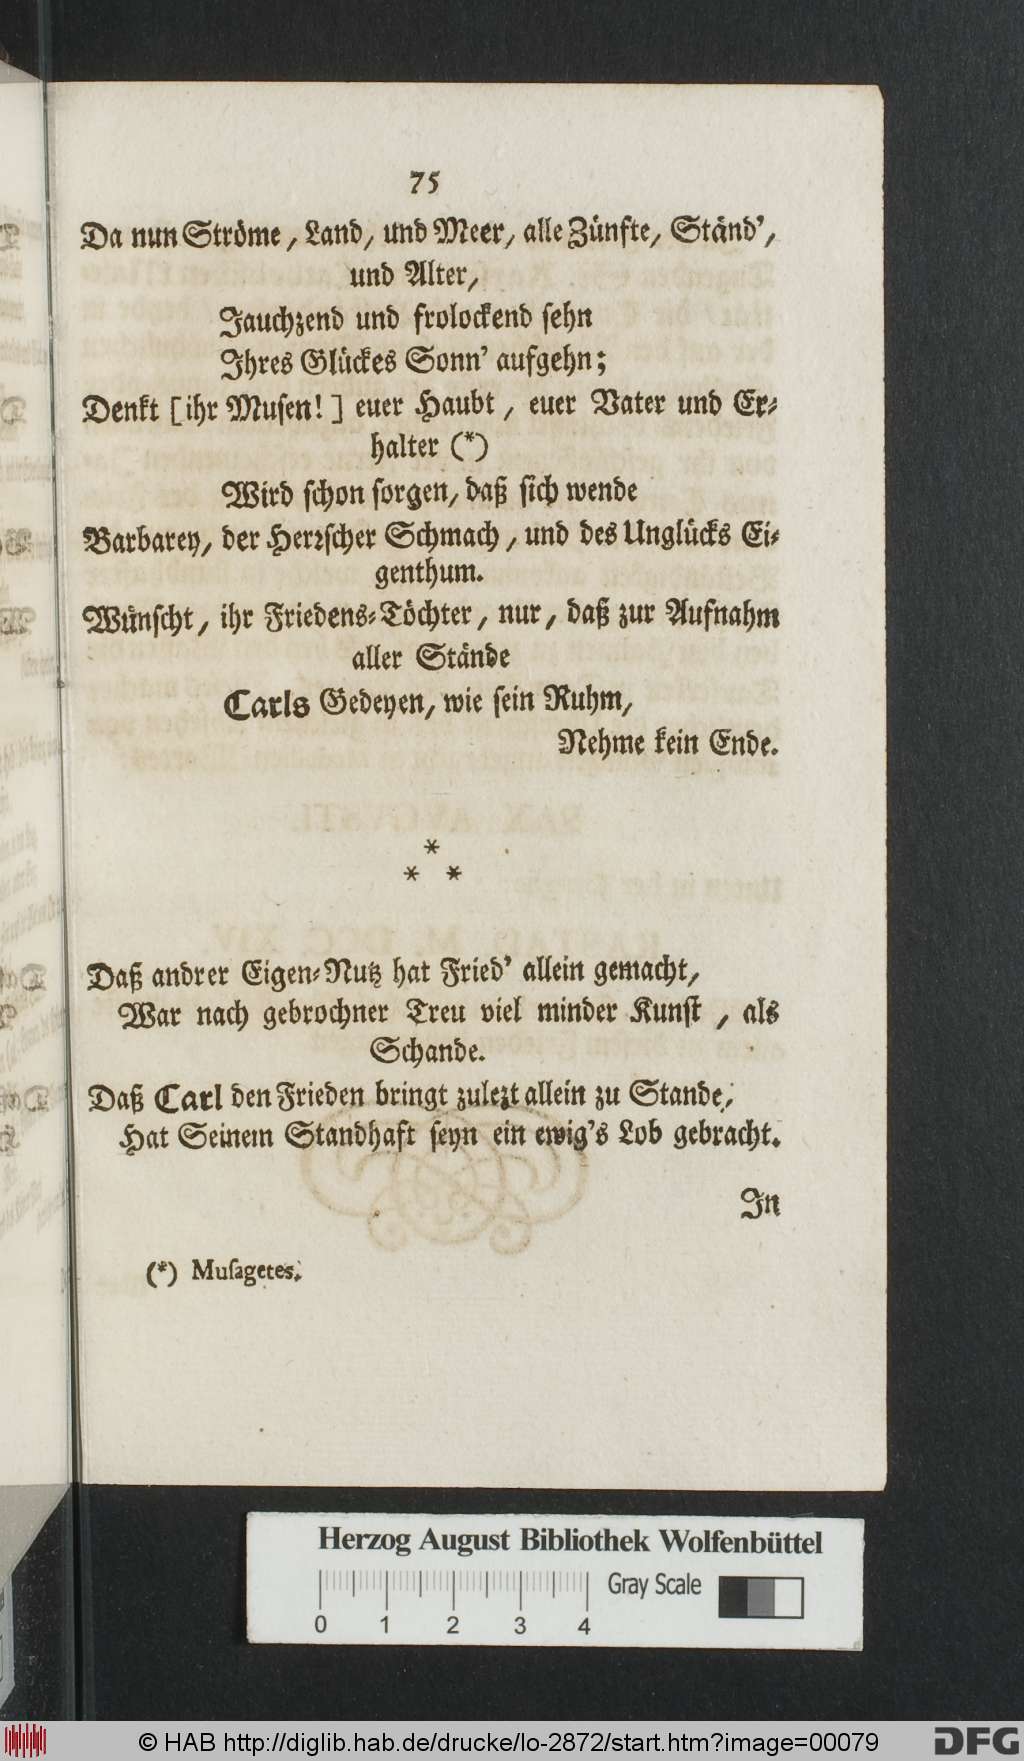 75
Da nun Ströme, Land, und Meer, alle Zünfte, Ständ’,
und Alter,
Jauchzend und frolockend sehn
Ihres Glückes Sonn’ aufgehn;
Denkt [ihr Musen!] euer Haubt, euer Vater und Er-
halter (*)
Wird schon sorgen, daß sich wende
Barbarey, der Herrscher Schmach, und des Unglücks Ei-
genthum.
Wünscht, ihr Friedens-Töchter, nur, daß zur Aufnahm
aller Stände
Carls Gedeyen, wie sein Ruhm,
Nehme kein Ende.
*
* *
Daß andrer Eigen-Nutz hat Fried’ allein gemacht,
War nach gebrochner Treu viel minder Kunst, als
Schande.
Daß Carl den Frieden bringt zulezt allein zu Stande,
Hat Seinem Standhaft seyn ein ewig’s Lob gebracht.
In
(*) Musagetes.
Herzog August Bibliothek Wolfenbüttel
Gray Scale
0 1 2 3 4
© HAB http://diglib.hab.de/drucke/lo-2872/start.htm?image=00079
DFG